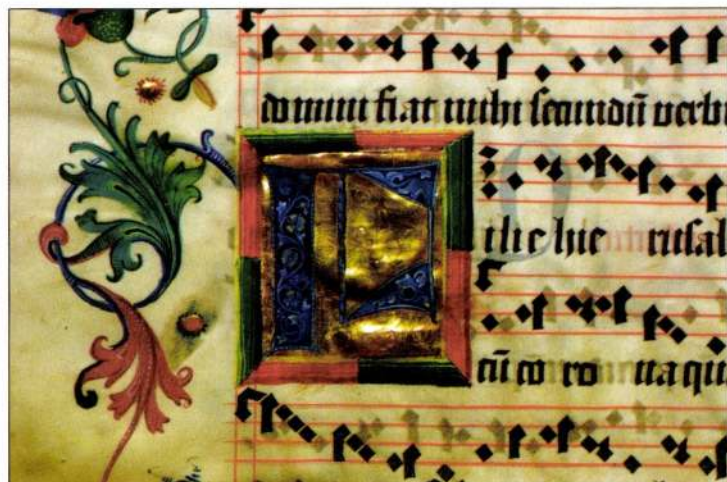 domini fiat mihi secundū verb
Filie hie rusal
cū co ro na qu